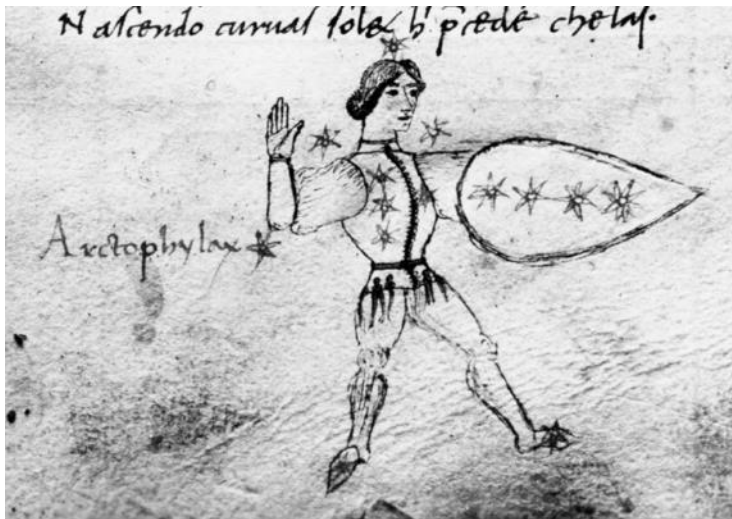 Nascendo curvas solet h p̄cedē chelas.
Arctophylax